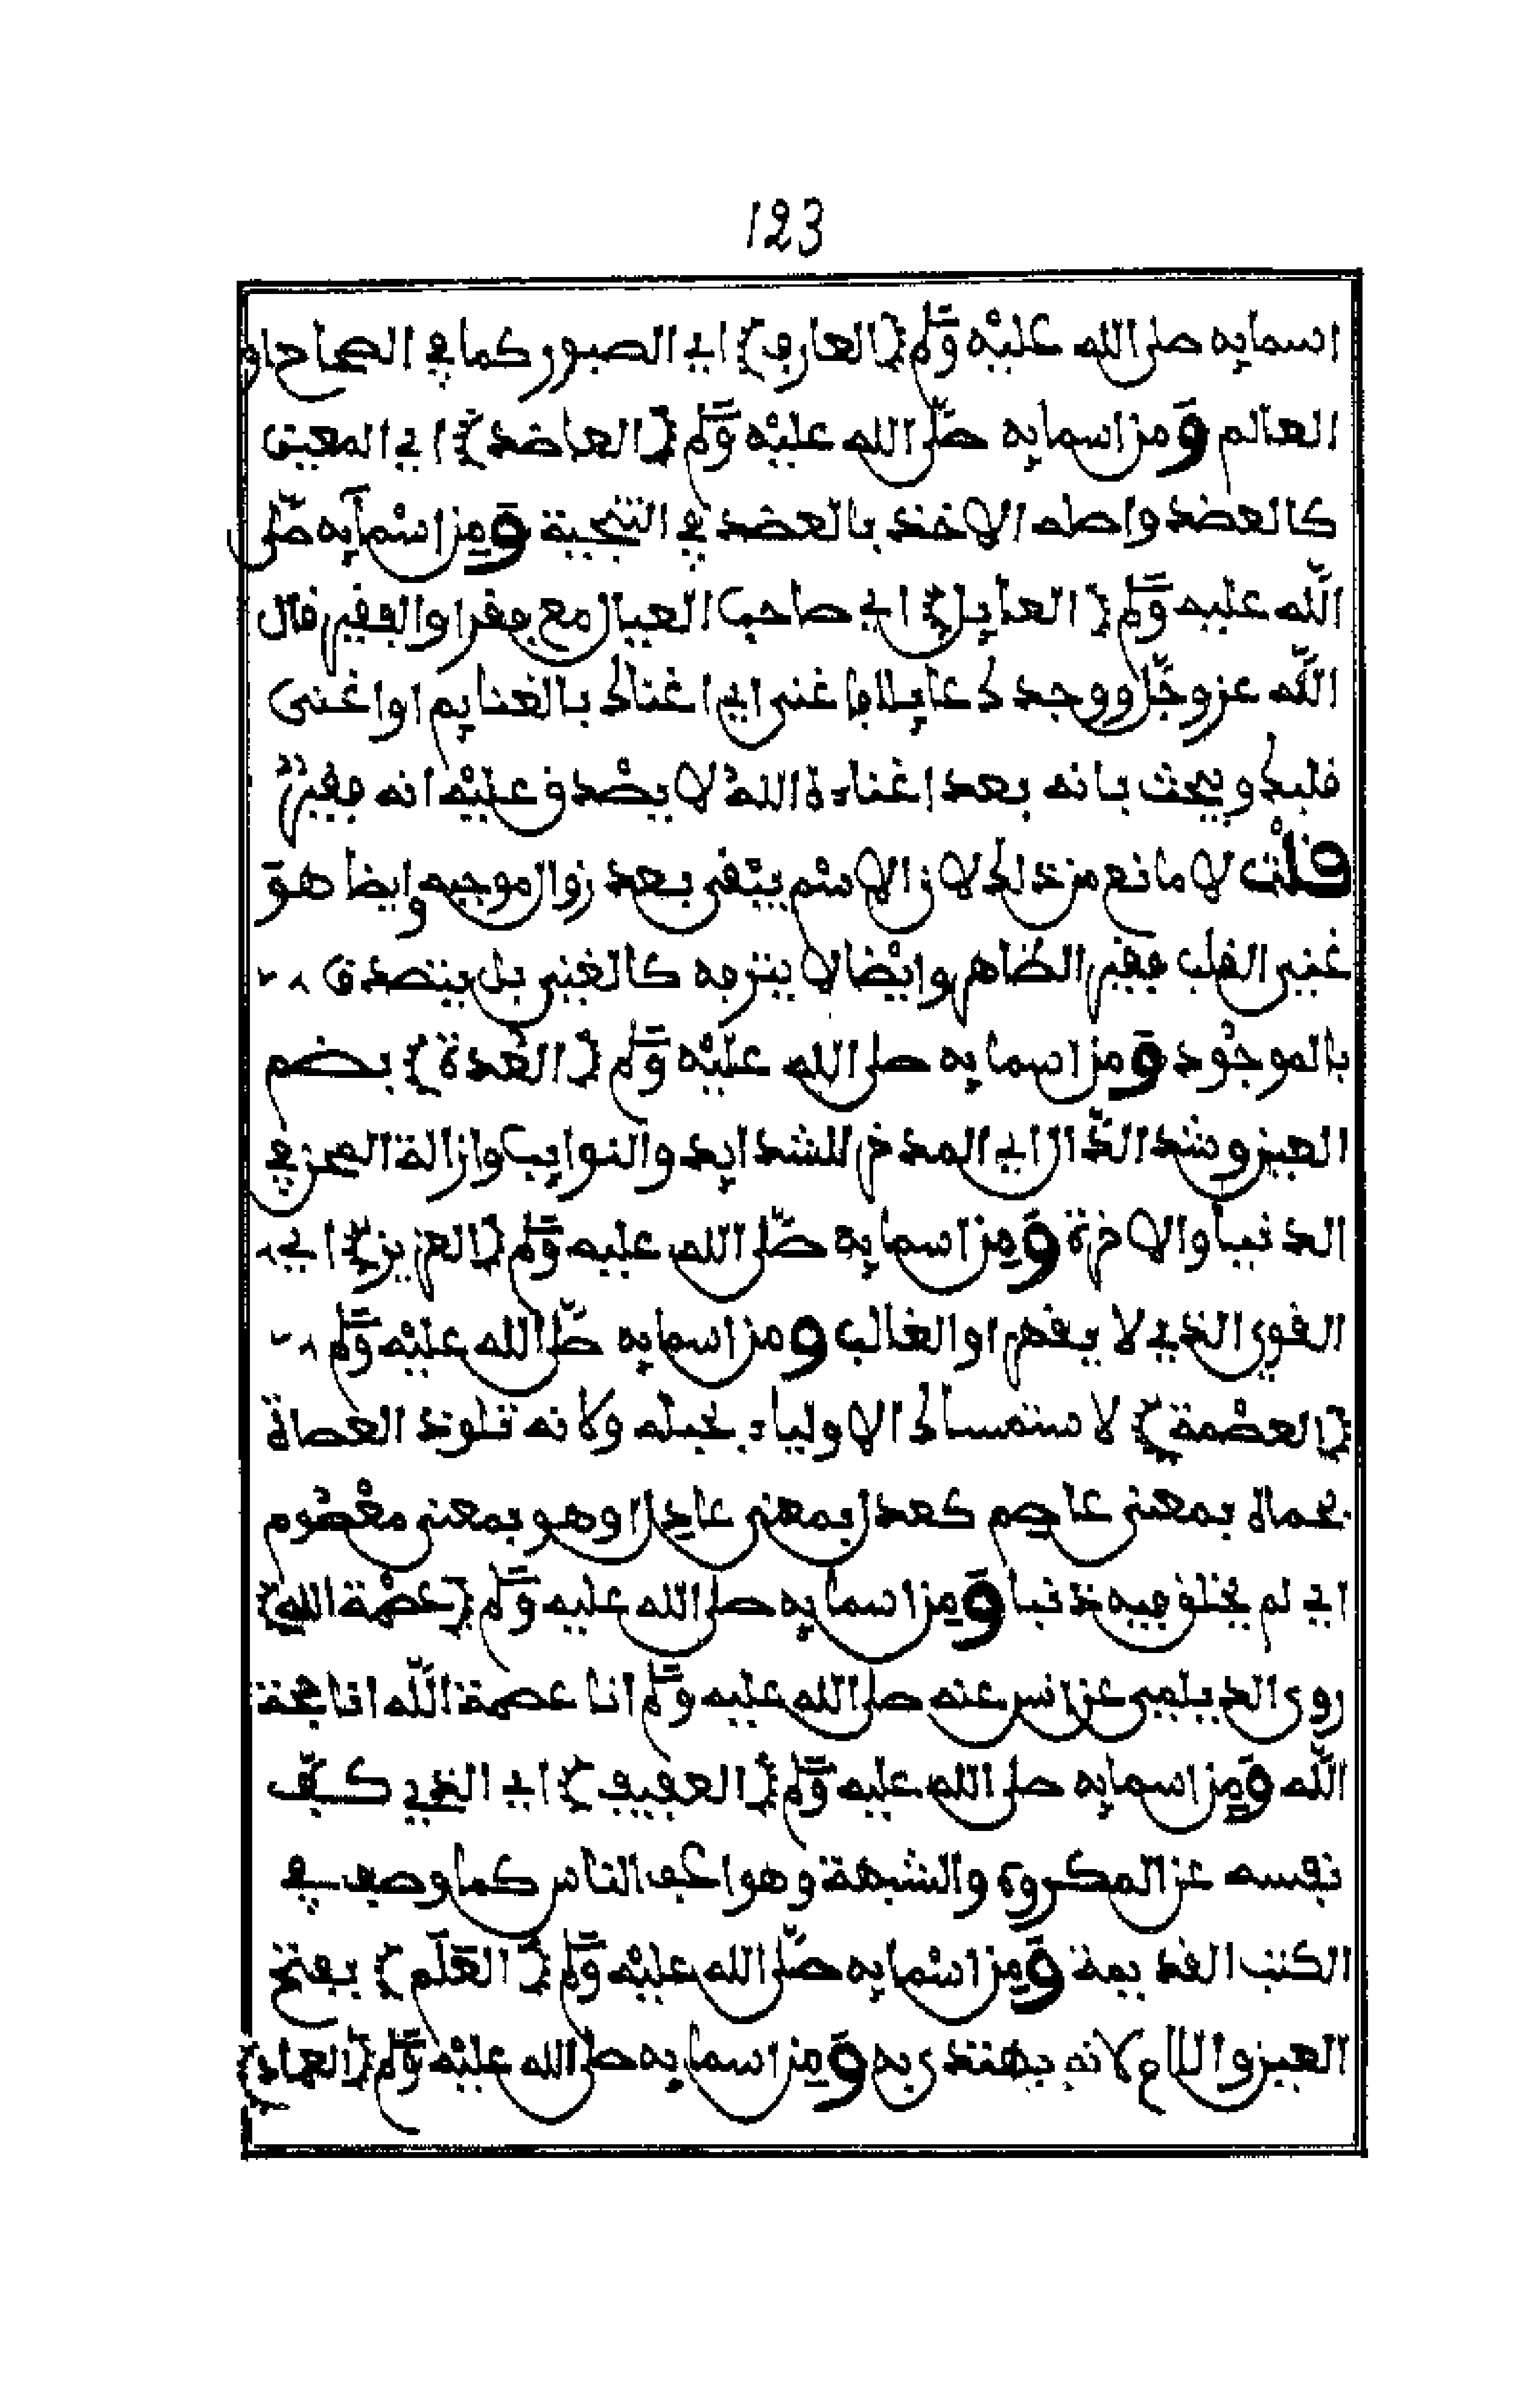 123
اسمايه صلى الله عليه وسلم {العارف} اي الصبور كما في الصحاح او
العالم ومن اسمايه صلى الله عليه وسلم {العاضد} اي المعين
كالعضد واصله الاخذ بالعضد في التنحية ومن اسمايه صلى
الله عليه وسلم {العايل} اي صاحب العيال مع فقر او الفقير قال
الله عز وجل ووجدك عايلا فاغنى اي اغناك بالغنايم او اغنى
قلبك وبحث بانه بعد اغناءه الله لا يصدق عليه انه فقير
قلت لا مانع من ذلك لان الاسم يبقى بعد زوال موجبه وايضا هو
غني القلب فقير الظاهر وايضا لا يترفه كالغني بل يتصدق
بالموجود ومن اسمايه صلى الله عليه وسلم {العدة} بضم
العين وشد الدال اي المدخر للشدايد والنوايب وازالة المحن في
الدنيا والاخرة ومن اسمايه صلى الله عليه وسلم {العزيز} اي
القوي الذي لا يقهر او الغالب ومن اسمايه صلى الله عليه وسلم
{العصمة} لاستمساك الاولياء بحبله ولانه تلوذ العصاة
بحماه بمعنى عاصم كعدل بمعنى عادل او هو بمعنى معصوم
اي لم يخلق فيه ذنبا ومن اسمايه صلى الله عليه وسلم {عصمة الله}
روى الديلمي عن انس عنه صلى الله عليه وسلم انا عصمة الله انا حجة
الله ومن اسمايه صلى الله عليه وسلم {العفيف} اي الذي كف
نفسه عن المكروه والشبهة وهو اعف الناس كما وصف في
الكتب القديمة ومن اسمايه صلى الله عليه وسلم {العلم} بفتح
العين واللام لانه يهتدى به ومن اسمايه صلى الله عليه وسلم {العماد}